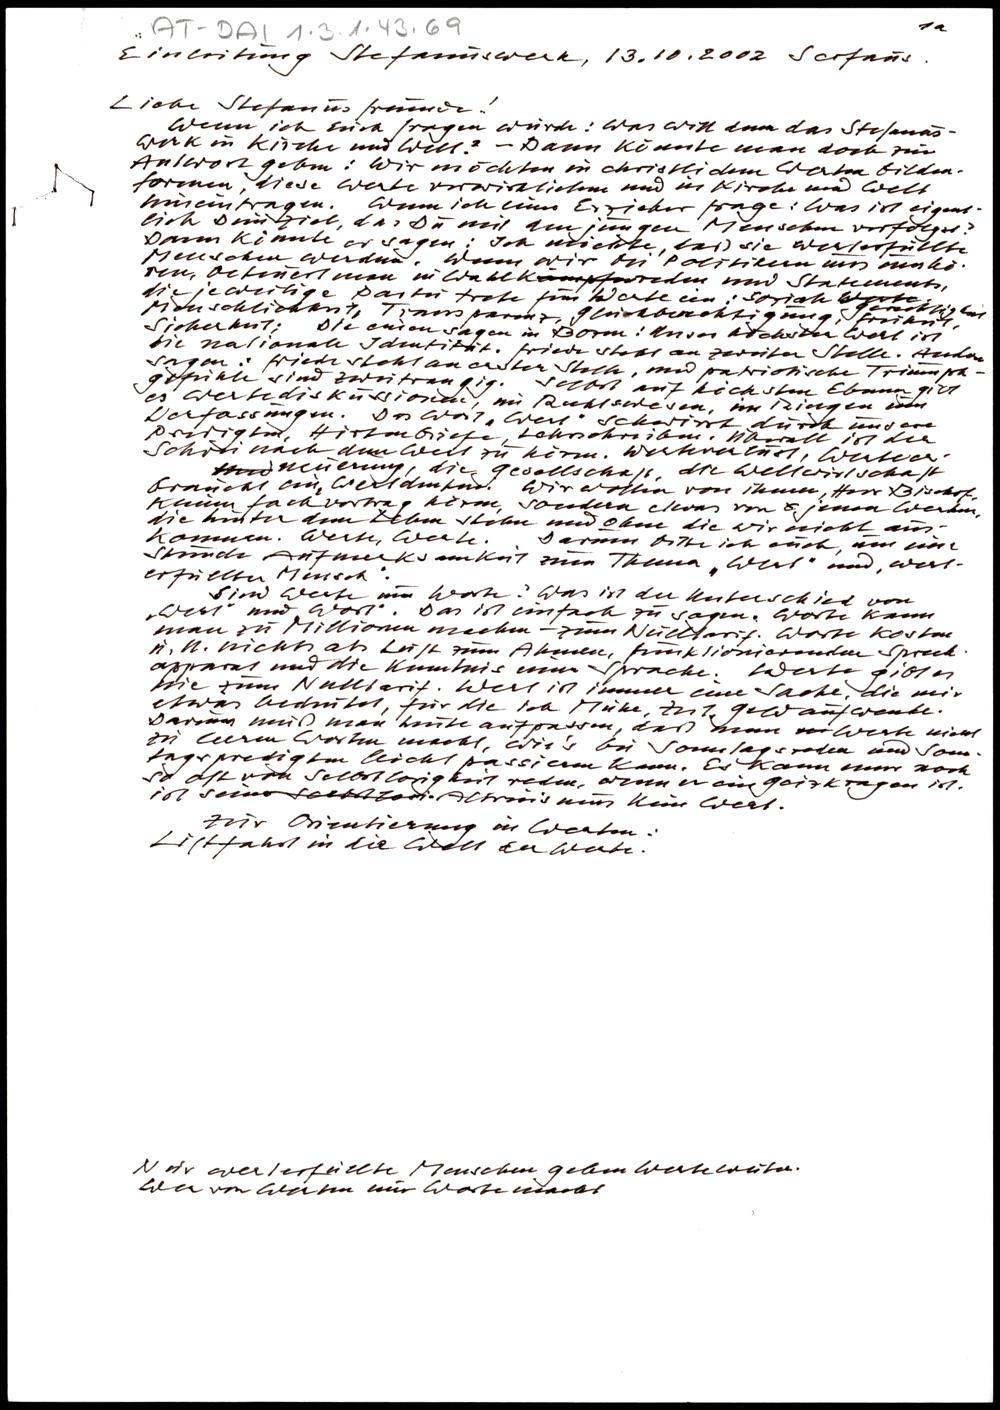 AT-DAI 1.3.1.43.69
1a
Einleitung Stefanuswerk, 13.10.2002 Serfaus.
Liebe Stefanusfreunde!
Wenn ich Euch fragen würde: Was will denn das Stefanus-
werk in Kirche und Welt? - Dann könnte man doch zur
Antwort geben: Wir möchten in christlichen Werten bilden.
formen, diese Werte verwirklichen und in Kirche und Welt
hineintragen. Wenn ich einen Erzieher frage: Was ist eigent-
lich Dein Ziel, das Du mit den jungen Menschen verfolgst?
Dann könnte er sagen: Ich möchte, daß sie werterfüllte
Menschen werden. Wenn wir bei Politikern uns umhö-
ren, beteuert man in Wahlkampfreden und Statements,
die jeweilige Partei trete für Werte ein: soziale Werte, Gerechtigkeit
Menschlichkeit, Transparenz, Gleichberechtigung, Freiheit,
Sicherheit; Die einen sagen in Bonn: Unser höchster Wert ist
die nationale Identität. Friede steht an zweiter Stelle. Andere
sagen: Friede steht an erster Stelle, und patriotische Triumph-
gefühle sind zweitrangig. Selbst auf höchsten Ebenen gibt
es Wertediskussionen, im Rechtswesen, im Ringen um
Verfassungen. Das Wort "Wert" schwirrt durch unsere
Predigten, Hirtenbriefe, Lehrschreiben. Überall ist der
Schrei nach dem Wert zu hören. Wertverlust, Werteer-
neuerung, die Gesellschaft, die Weltwirtschaft
braucht ein Wertdenken. Wir wollen von Ihnen, Herr Bischof,
keinen Fachvortrag hören, sondern etwas von jenen Werten,
die hinter dem Leben stehen und ohne die wir nicht aus-
kommen. Werte, Werte. Darum bitte ich euch, um eine
Stunde Aufmerksamkeit zum Thema "Wert" und "wert-
erfüllter Mensch".
Sind Werte nur Worte? Was ist der Unterschied von
"Wert" und "Wort". Das ist einfach zu sagen. Worte kann
man zu Millionen machen - zum Nulltarif. Worte kosten
u. U. nichts als Luft zum Atmen, funktionierenden Sprech-
apparat und die Kenntnis einer Sprache. Werte gibt es
nie zum Nulltarif. Wert ist immer eine Sache, die mir
etwas bedeutet, für die ich Mühe, Zeit, Geld aufwende.
Darum muß man heute aufpassen, daß man Werte nicht
zu leeren Worten macht, wie's bei Sonntagsreden und Sonn-
tagspredigten leicht passieren kann. Es kann einer noch
so oft von Selbstlosigkeit reden, wenn er ein Geizkragen ist.
ist sein Altruismus kein Wert.
Zur Orientierung in Werten:
Liftfahrt in die Welt der Werte.
Nur werterfüllte Menschen geben Werte weiter.
Wer von Werten nur Worte macht